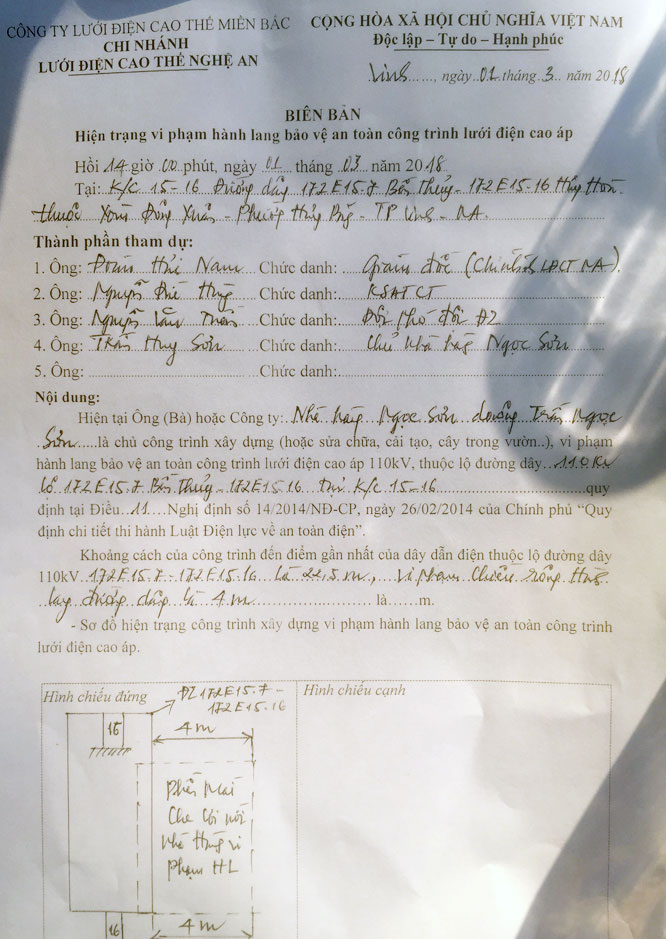 CÔNG TY LƯỚI ĐIỆN CAO THẾ MIỀN BẮC
CHI NHÁNH
LƯỚI ĐIỆN CAO THẾ NGHỆ AN
CỘNG HÒA XÃ HỘI CHỦ NGHĨA VIỆT NAM
Độc lập – Tự do – Hạnh phúc
Vinh......, ngày..01..tháng..3.. năm 2018
BIÊN BẢN
Hiện trạng vi phạm hành lang bảo vệ an toàn công trình lưới điện cao áp
Hồi 14 giờ 00 phút, ngày 01 tháng 03 năm 2018
Tại: K/C 15-16 Đường dây 172E15.7 Bến Thủy - 172E15-16
thuộc Xóm Đông Xuân - Phường Hưng - TP Vinh - NA
Thành phần tham dự:
1. Ông: Đoàn Hải Nam Chức danh: Giám đốc (Chi nhánh LĐCT NA).
2. Ông: Nguyễn Chức danh: KSATCT
3. Ông: Nguyễn Văn Chức danh: Đội phó đội ĐZ
4. Ông: Trần Huy Sơn Chức danh: Chủ nhà hàng Ngọc Sơn
5. Ông: Chức danh:
Nội dung:
Hiện tại Ông (Bà) hoặc Công ty: Nhà hàng Ngọc Sơn đường Trần Ngọc
Sơn là chủ công trình xây dựng (hoặc sửa chữa, cải tạo, cây trong vườn..), vi phạm
hành lang bảo vệ an toàn công trình lưới điện cao áp 110kV, thuộc lộ đường dây 110kV
lộ 172E15.7 Bến Thủy - 172E15.16 tại K/C 15-16 quy
định tại Điều 11 Nghị định số 14/2014/NĐ-CP, ngày 26/02/2014 của Chính phủ “Quy
định chi tiết thi hành Luật Điện lực về an toàn điện”.
Khoảng cách của công trình đến điểm gần nhất của dây dẫn điện thuộc lộ đường dây
110kV 172E15.7 - 172E15.16 là 22,5m, vi phạm chiều rộng hành
lang đường dây là 4m là......m.
- Sơ đồ hiện trạng công trình xây dựng vi phạm hành lang bảo vệ an toàn công trình
lưới điện cao áp.
Hình chiếu đứng
ĐZ 172E15.7 -
172E15.16
Hình chiếu cạnh
15
4m
Phần Mái
Che
nhà hàng vi
phạm HL
16
4m